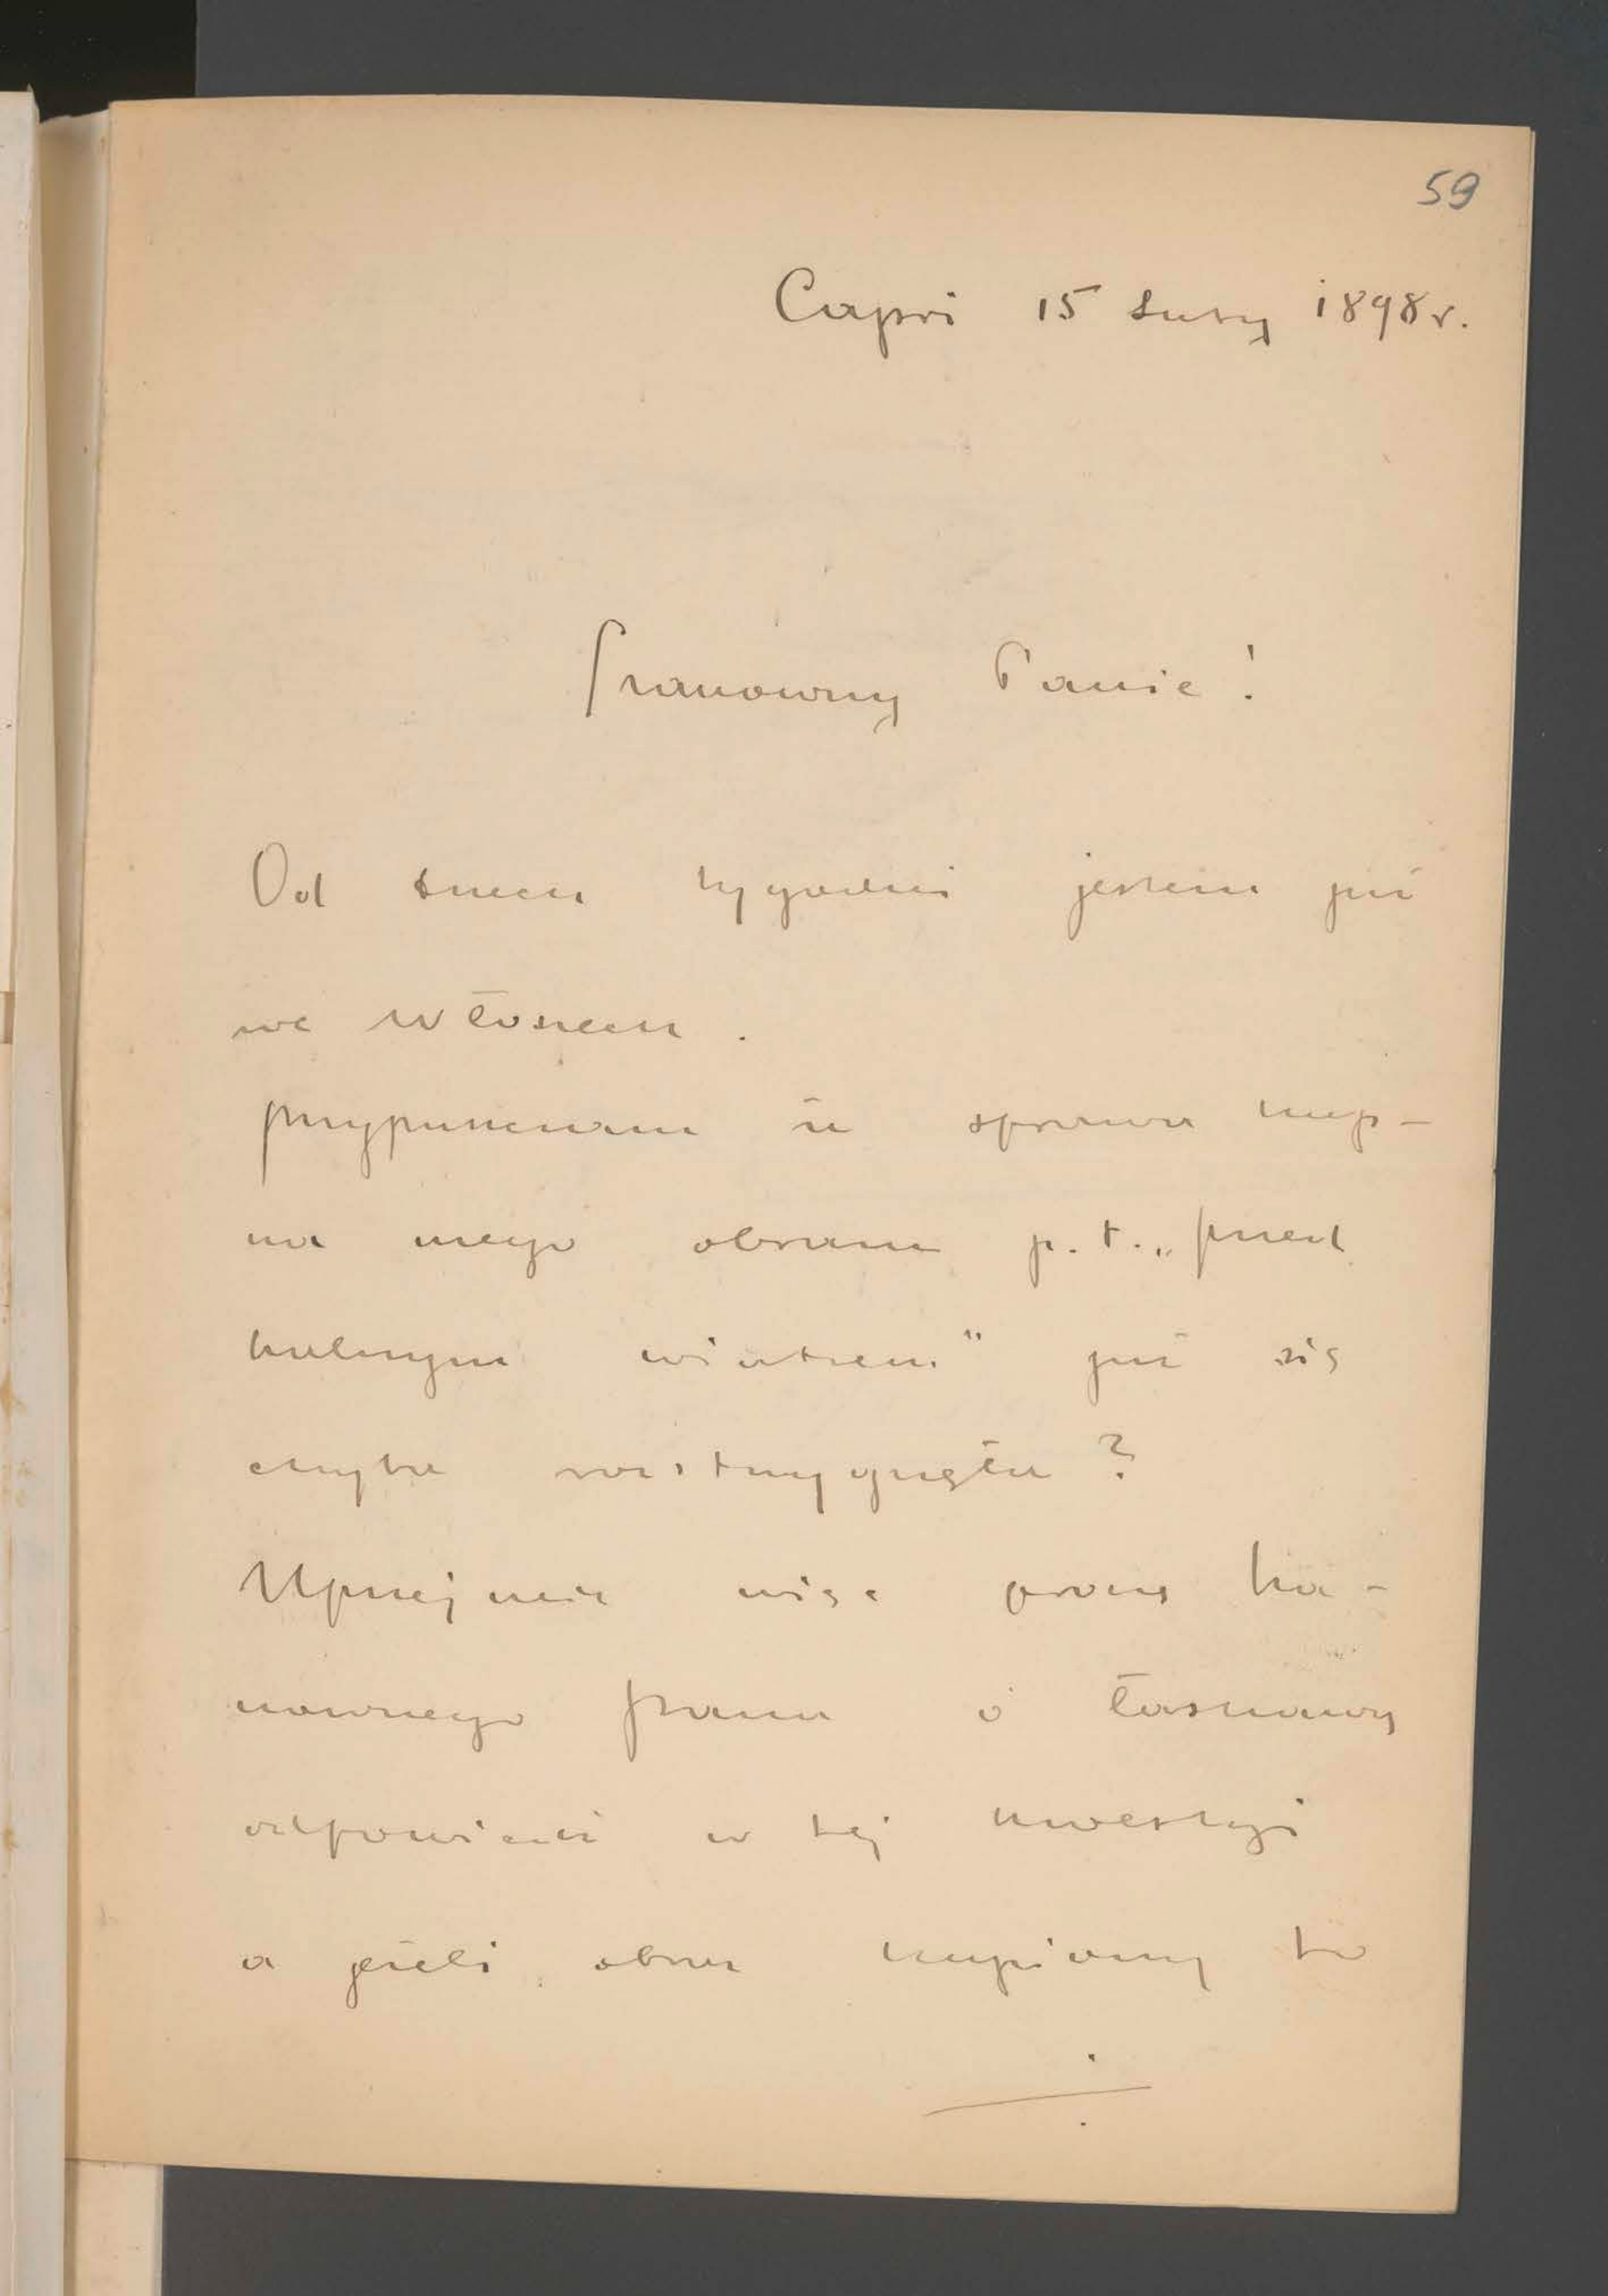 59
Capri 15 Luty 1898 r.
Szanowny Panie!
Od trzech tygodni jestem już
we Włoszech.
Przypuszczam że sprawa kup-
na mego obrazu p. t. „Przed
halnym wiatrem" już się
chyba rozstrzygnęła?
Uprzejmie więc proszę Sza-
nownego Pana o łaskawą
odpowiedź w tej kwestyi
a jeżeli obraz kupiony to